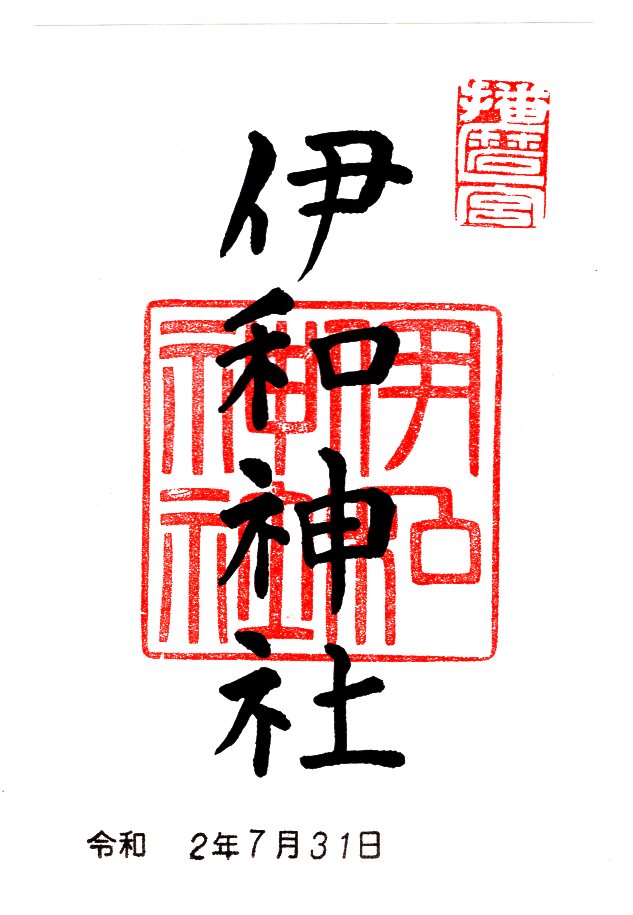 播磨宮
伊和神社
伊和
神社
令和 2年7月31日